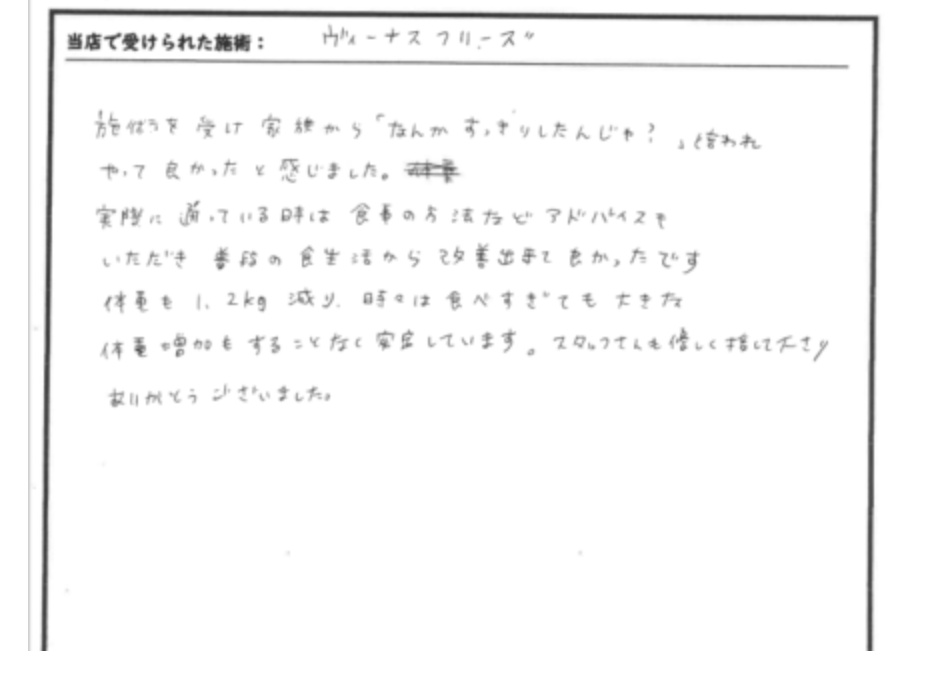 当店で受けられた施術： ヴィーナスフリーズ
施術を受け 家族から「なんか すっきりしたんじゃ？」と言われ
やって良かったと感じました。
実際に通っている時は 食事の方法など アドバイスも
いただき 普段の食生活から 改善出来て良かったです
体重も 1.2kg 減り、時々は食べすぎても 大きな
体重増加もすることなく安定しています。スタッフさんも優しく接して下さり
ありがとうございました。